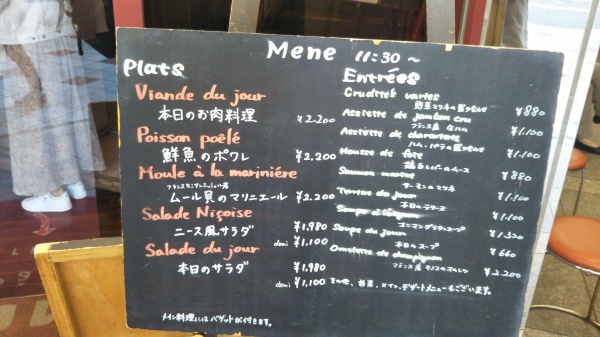 Mene 11:30 ~
Plats
Viande du jour
本日のお肉料理 ¥2.200
Poisson poêlé
鮮魚のポワレ ¥2.200
Moule à la marinière
ムール貝のマリニエール ¥2.200
Salade Niçoise
ニース風サラダ ¥1.980
demi ¥1.100
Salade du jour
本日のサラダ ¥1.980
demi ¥1.100
メイン料理にはバゲットが付きます。
Entrées
Crudités varies
¥880
Assiette de jambon cru
フランス産 生ハム ¥1.100
Assiette de charcuterie
¥1.100
Mousse de foie
鶏レバーのムース ¥880
Saumon mariné
サーモンのマリネ ¥1.100
Terrine du jour
本日のテリーヌ ¥1.100
オニオングラタンスープ ¥1.320
Soupe du jour
本日のスープ ¥660
Omelette de champignon
フランス産 キノコのオムレツ ¥2.200
その他、前菜、メイン、デザートメニューもございます。